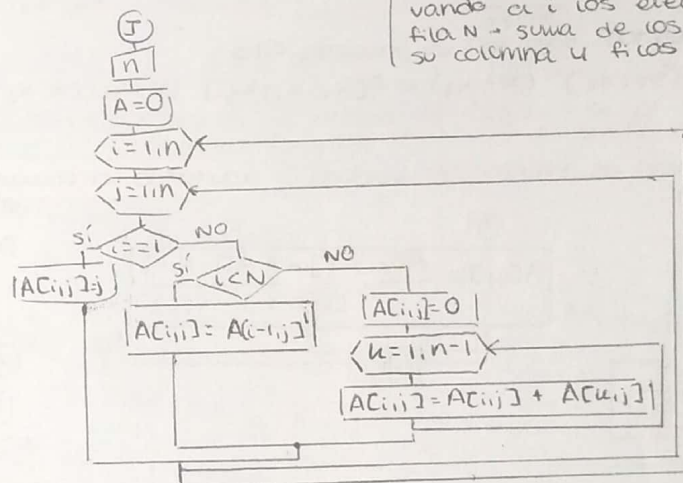 vando a i los
fila N - suma de los
su columna u filas
I
n
A=0
i=1,n
j=1,n
sí
i==1
NO
A[i,j]=j
sí
i<N
NO
A[i,j]= A[i-1,j]^i
A[i,j]=0
u=1,n-1
A[i,j]=A[i,j] + A[u,j]